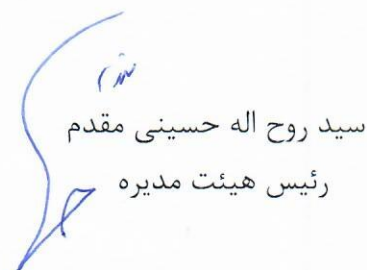 سید روح اله حسینی مقدم
رئیس هیئت مدیره